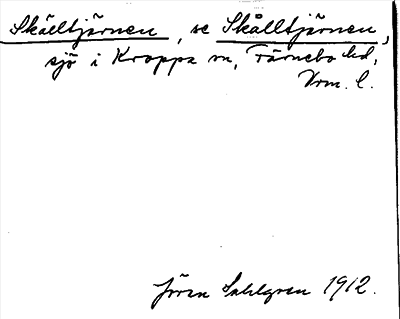 Skäeltjärnen, se Skålltjärnen,
sjö i Kroppa sn, Färnebo hd,
Vrm. l.
Jöran Sahlgren 1912.